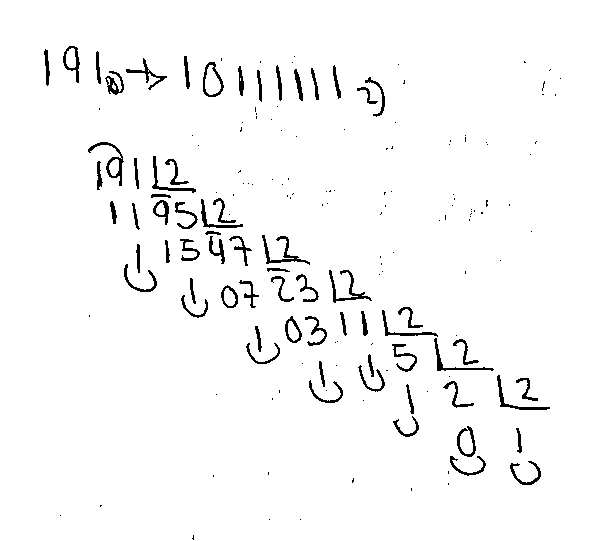 191₁₀→10111111₂)
191 |2
11 95 |2
1 15 47 |2
1 07 23 |2
1 03 11 |2
1 1 5 |2
1 2 |2
0 1